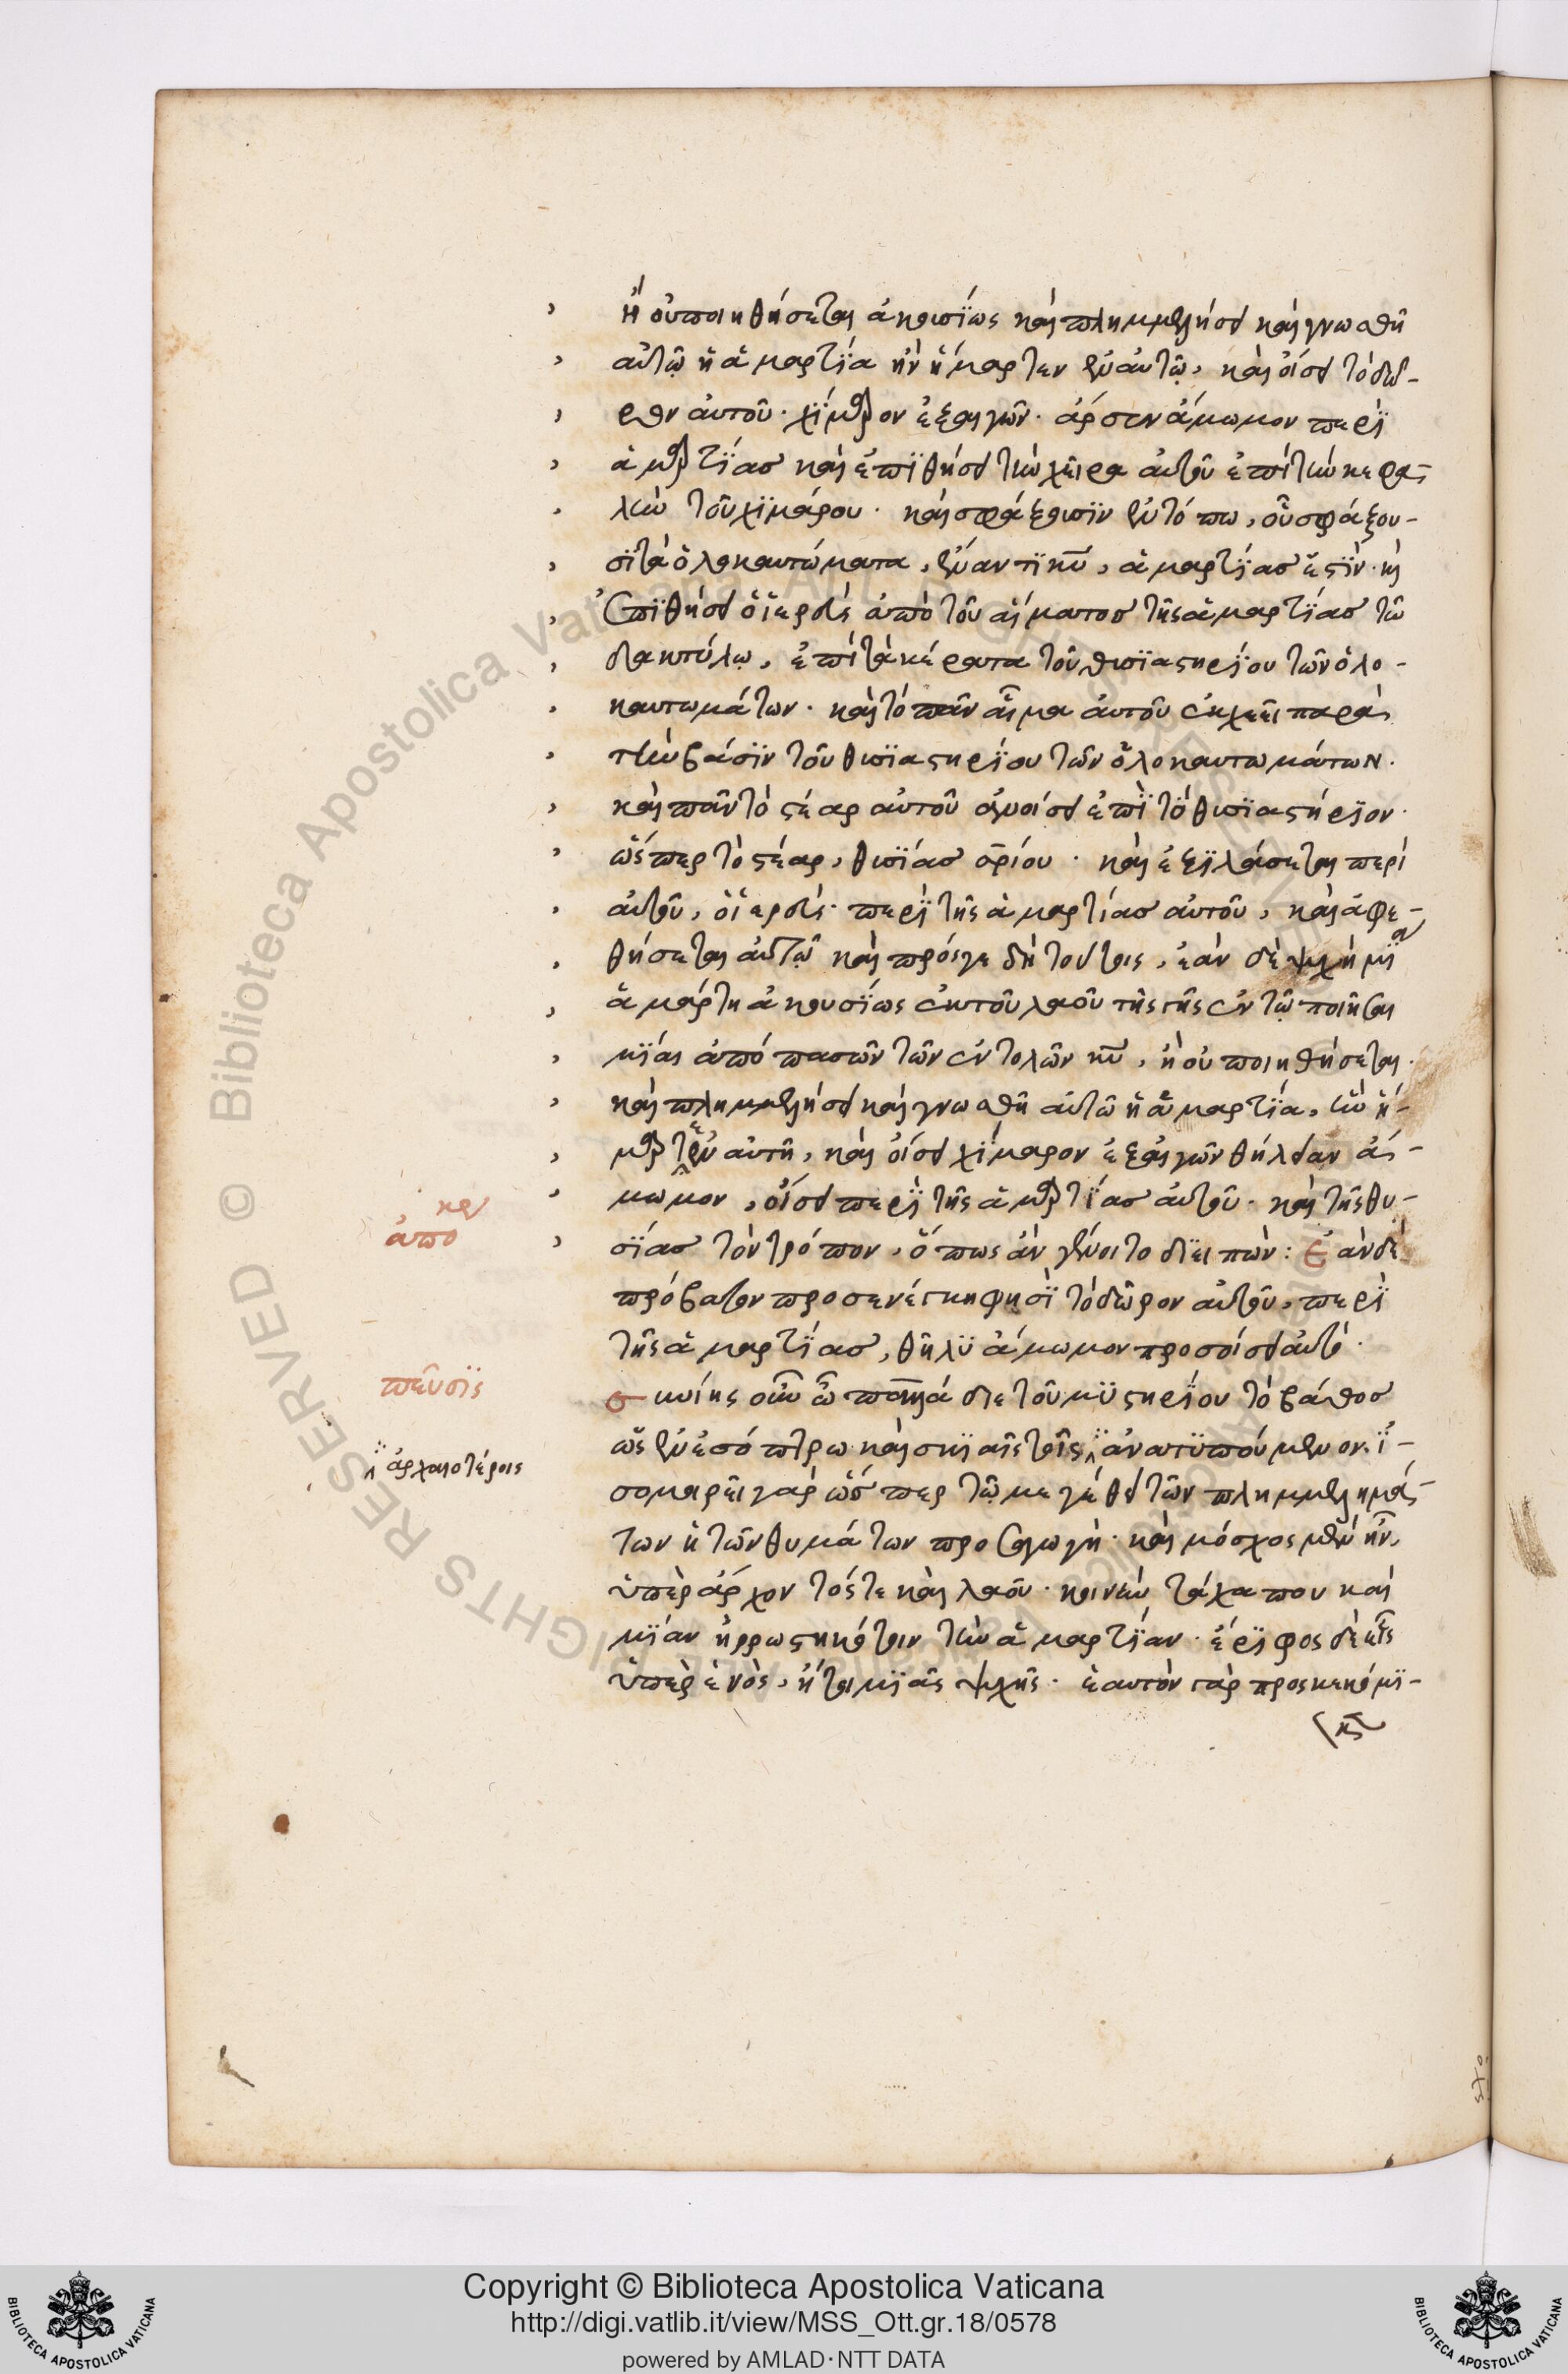 ἣ οὐ ποιηθήσεται ἀκουσίως καὶ πλημμελήσει καὶ γνωσθῆ
αὐτῷ ἡ ἁμαρτία ἣν ἥμαρτεν ἐν αὐτῷ, καὶ οἴσει τὸ δῶ-
ρον αὐτοῦ· χίμαρον ἐξ αἰγῶν· ἄρσεν ἄμωμον περὶ
ἁμαρτίας καὶ ἐπιθήσει τὴν χεῖρα αὐτοῦ ἐπὶ τὴν κεφα-
λὴν τοῦ χιμάρου· καὶ σφάξουσιν ἐν τόπω, οὗ σφάξου-
σι τὰ ὁλοκαυτώματα, ἐναντι κυ, ἁμαρτίας ἐστίν· καὶ
ἐπιθήσει ὁ ἱερεὺς ἀπὸ τοῦ αἵματος τῆς ἁμαρτίας τῶ
δακτύλῳ, ἐπὶ τὰ κέρατα τοῦ θυσιαστηρίου τῶν ὁλο-
καυτωμάτων· καὶ τὸ πᾶν αἷμα αὐτοῦ ἐκχεεῖ παρὰ
τὴν βάσιν τοῦ θυσιαστηρίου τῶν ὁλοκαυτωμάτων.
καὶ πᾶν τὸ στέαρ αὐτοῦ ἀνοίσει ἐπὶ τὸ θυσιαστήριον·
ὥσπερ τὸ στέαρ, θυσίας σρίου· καὶ ἐξιλάσεται περὶ
αὐτοῦ, ὁ ἱερεύς· περὶ τῆς ἁμαρτίας αὐτοῦ, καὶ ἀφε-
θήσεται αὐτῷ καὶ πρόσγε δὴ τούτοις, ἐὰν δὲ ψυχὴ μία
ἁμάρτη ἀκουσίως ἐκ τοῦ λαοῦ τῆς γῆς ἐν τῷ ποιῆσαι
μίαν ἀπὸ πασῶν τῶν ἐντολῶν κυ, ἣ οὐ ποιηθήσεται.
καὶ πλημμελήσει καὶ γνωσθῆ αὐτῶ ἡ ἁμαρτία, ἣν ἥ-
μαρτεν ἐν αὐτῆ, καὶ οἴσει χίμαρον ἐξ αἰγῶν θήλειαν ἄ-
μωμον, οἴσει περὶ τῆς ἁμαρτίας αὐτοῦ· καὶ τῆς θυ-
κρ
ἀπο
σίας τὸν τρόπον, ὅπως ἂν γένοιτο διειπών: Ἐὰν δὲ
πρόβατον προσενέγκη φησὶ τὸ δῶρον αὐτοῦ, περὶ
τῆς ἁμαρτίας, θῆλυ ἄμωμον προσοίσει αὐτό·
πεῦσις
συνίης οὖν ὦ παλλάδιε τοῦ μυστηρίου τὸ βάθος
ὡς ἐν ἐσόπτρω καὶ σκιαῖς ταῖς ἀνατυπούμενον. ἰ-
ἀρχαιοτέροις
σομαρεῖ γὰρ ὥσπερ τῷ μεγέθει τῶν πλημμελημά-
των ἡ τῶν θυμάτων προσαγωγή· καὶ μόσχος μὲν ἦν,
ὑπὲρ ἄρχοντός τε καὶ λαοῦ· κοινὴν τάχα που καὶ
μίαν ἠρρωστηκότοιν τὴν ἁμαρτίαν· ἔριφος δὲ εἷς
ὑπὲρ ἑνὸς, ἤτοι μιᾶς ψυχῆς· ἑαυτὸν γὰρ προσκεκόμι-
κε
Copyright © Biblioteca Apostolica Vaticana
http://digi.vatlib.it/view/MSS_Ott.gr.18/0578
powered by AMLAD·NTT DATA